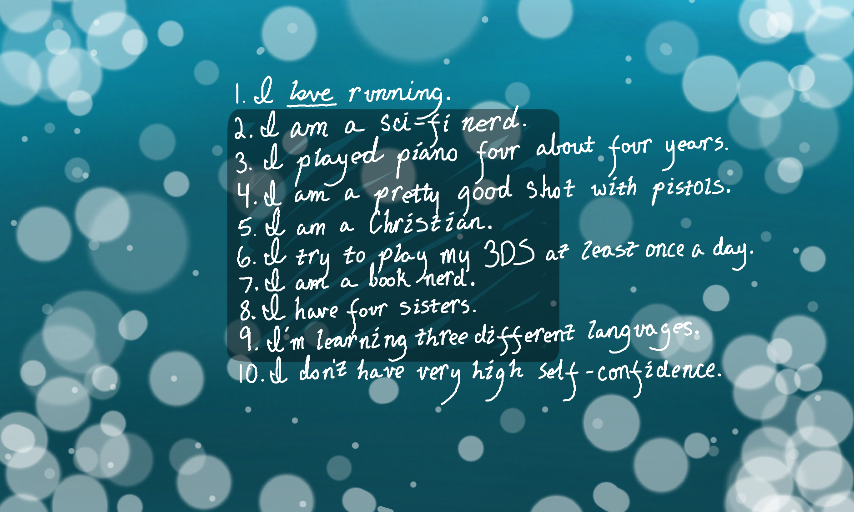 1. I love running.
2. I am a sci-fi nerd.
3. I played piano four about four years.
4. I am a pretty good shot with pistols.
5. I am a Christian.
6. I try to play my 3DS at least once a day.
7. I am a book nerd.
8. I have four sisters.
9. I'm learning three different languages.
10. I don't have very high self-confidence.